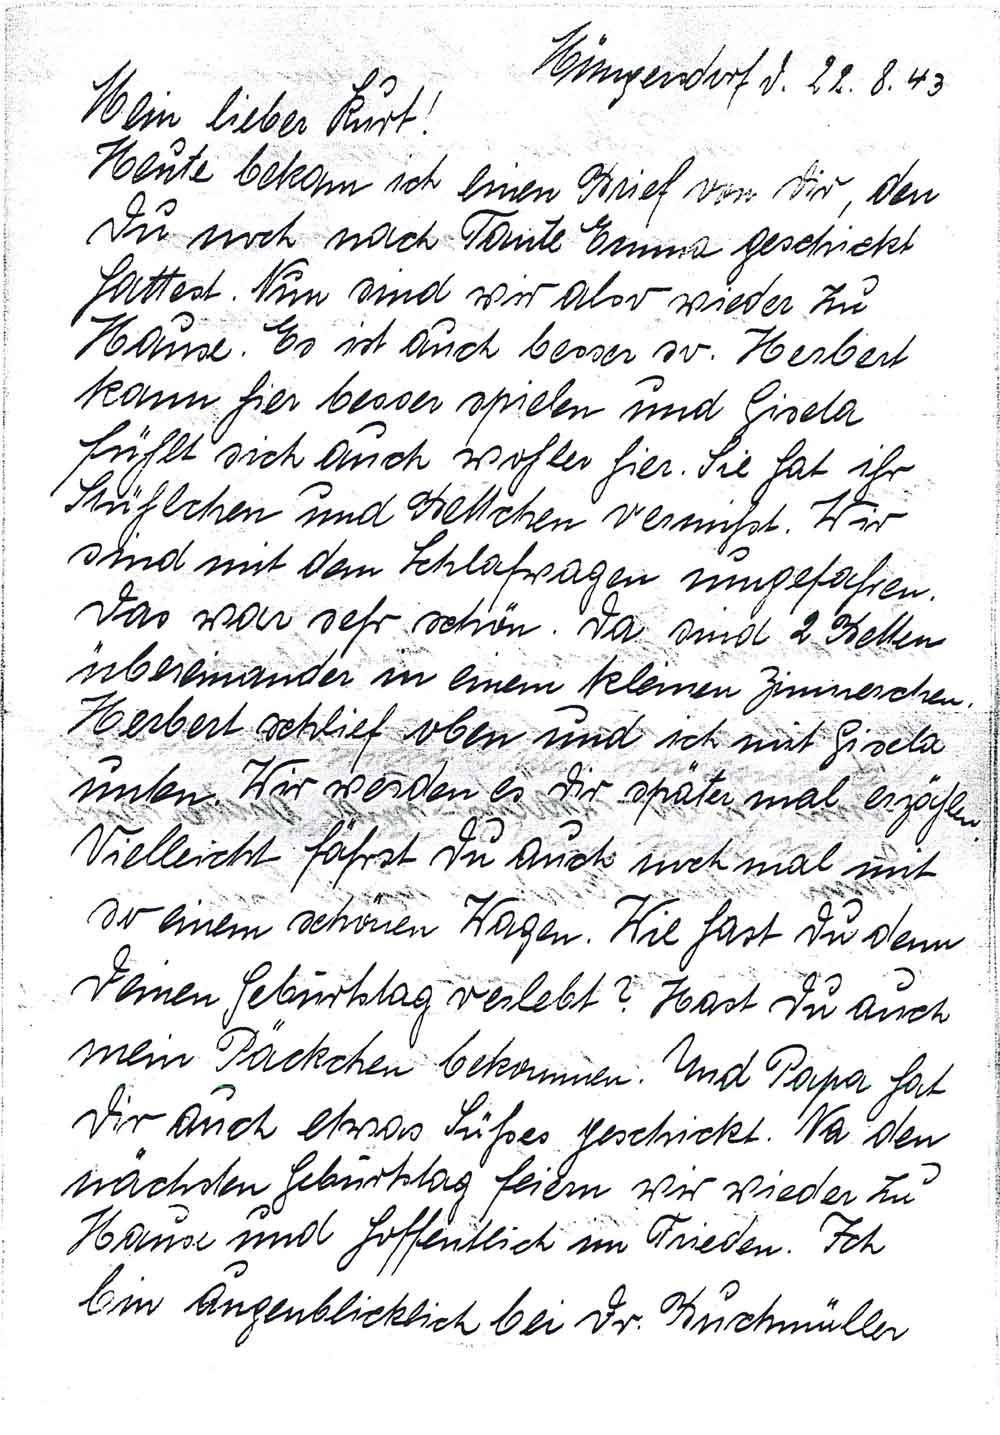 Müngersdorf d. 22. 8. 43
Mein lieber Kurt!
Heute bekam ich einen Brief von Dir, den
Du noch nach Tante Emma geschickt
hattest. Nun sind wir also wieder zu
Hause. Es ist auch besser so. Herbert
kann hier besser spielen und Gisela
fühlt sich auch wohler hier. Sie hat ihr
Stühlchen und Bettchen vermißt. Wir
sind mit dem Schlafwagen umgefahren.
Das war sehr schön. Da sind 2 Betten
übereinander in einem kleinen Zimmerchen.
Herbert schlief oben und ich mit Gisela
unten. Wir werden es Dir später mal erzählen.
Vielleicht fährst Du auch noch mal mit
so einem schönen Wagen. Wie hast Du denn
Deinen Geburtstag verlebt? Hast Du auch
mein Päckchen bekommen. Und Papa hat
Dir auch etwas Süßes geschickt. Na den
nächsten Geburtstag feiern wir wieder zu
Hause und hoffentlich im Frieden. Ich
bin augenblicklich bei Dr. Buchmüller